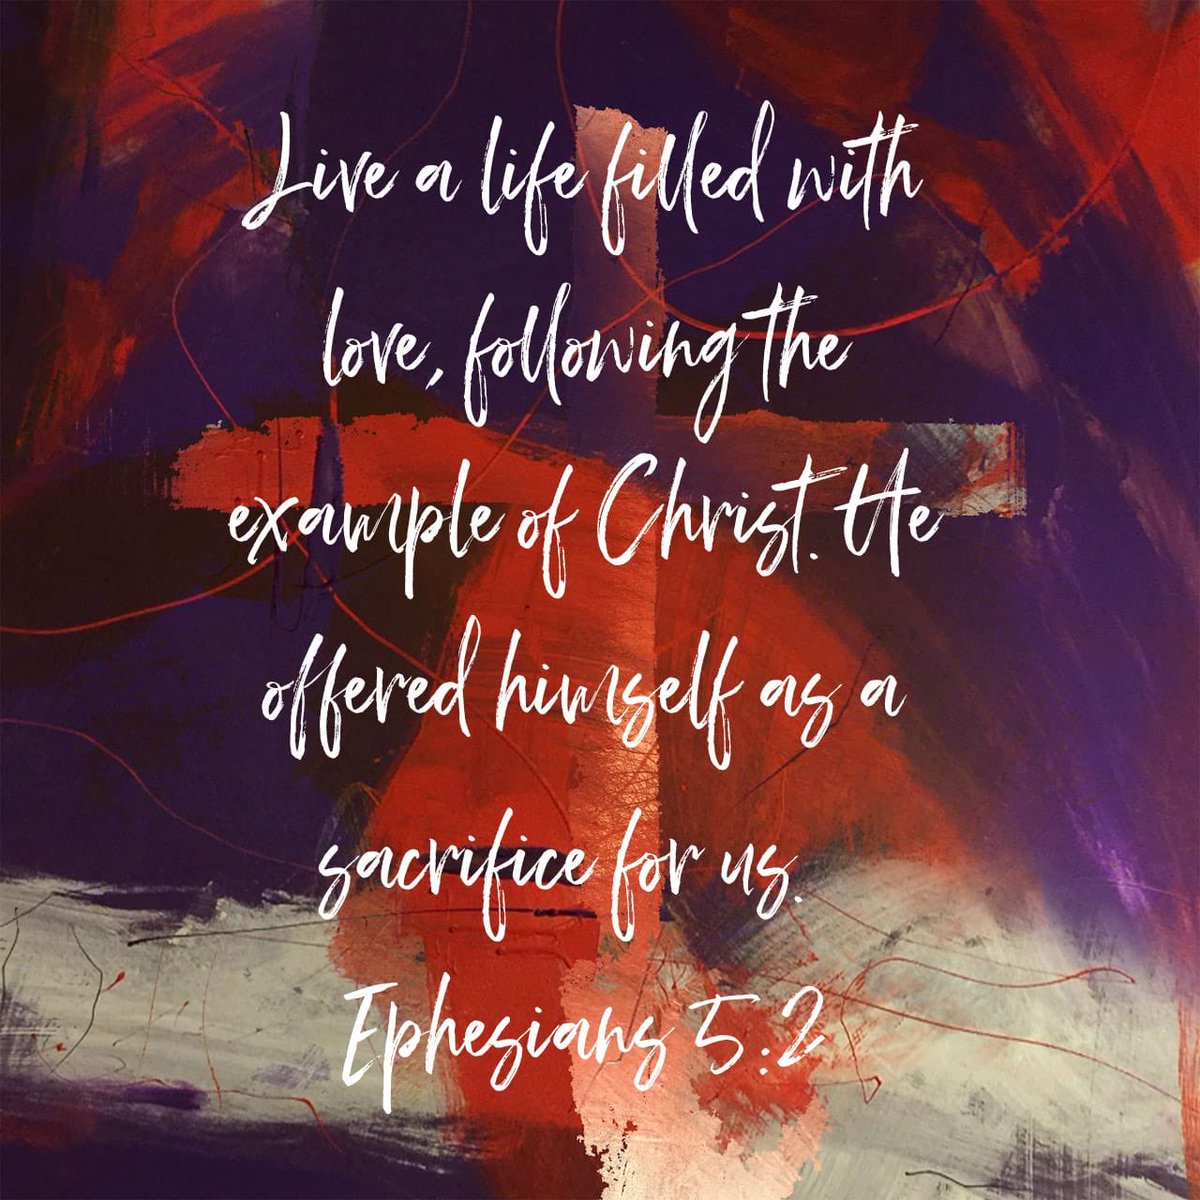 Live a life filled with
love, following the
example of Christ. He
offered himself as a
sacrifice for us.
Ephesians 5:2